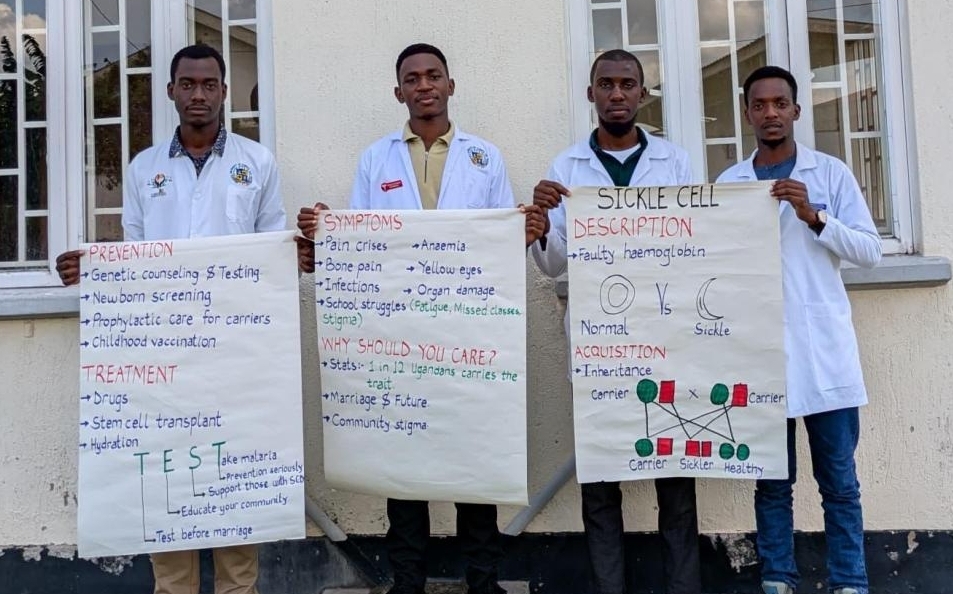 PREVENTION
→ Genetic counseling & Testing
→ Newborn screening
→ Prophylactic care for carriers
→ Childhood vaccination
TREATMENT
→ Drugs
→ Stem cell transplant
→ Hydration
TEST
Take malaria
Prevention seriously
→ Support those with SCD
→ Educate your community
→ Test before marriage
SYMPTOMS
→ Pain crises → Anaemia
→ Bone pain → Yellow eyes
→ Infections → Organ damage
→ School struggles (Fatigue, Missed classes,
Stigma)
WHY SHOULD YOU CARE?
→ Stats:- 1 in 12 Ugandans carries the
trait.
→ Marriage & Future
→ Community stigma
SICKLE CELL
DESCRIPTION
→ Faulty haemoglobin
Vs
Normal Sickle
ACQUISITION
→ Inheritance
Carrier x Carrier
Carrier Sickler Healthy